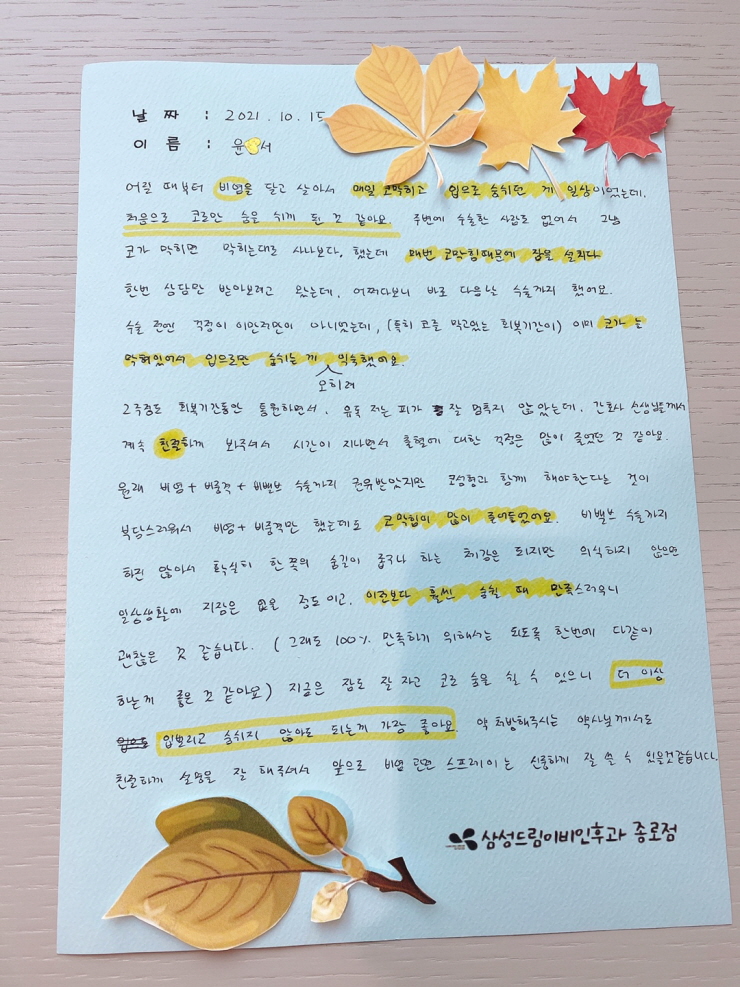 날 짜 : 2021. 10. 15
이 름 : 윤 서
어릴 때부터 비염을 달고 살아서 매일 코막히고 입으로 숨쉬던 게 일상이었는데,
처음으로 코로만 숨을 쉬게 된 것 같아요. 주변에 수술한 사람도 없어서 그냥
코가 막히면 막히는대로 사나보다, 했는데 매번 코막힘때문에 잠을 설치다
한번 상담만 받아보려고 왔는데, 어쩌다보니 바로 다음날 수술까지 했어요.
수술 전엔 걱정이 이만저만이 아니었는데, (특히 코를 막고있는 회복기간이) 이미 코가 늘
막혀있어서 입으로만 숨쉬는 게 오히려 익숙했어요.
2주정도 회복기간동안 통원하면서, 유독 저는 피가 잘 멈추지 않았는데, 간호사 선생님들께서
계속 친절하게 봐주셔서 시간이 지나면서 출혈에 대한 걱정은 많이 줄었던 것 같아요.
원래 비염 + 비중격 + 비밸브 수술까지 권유받았지만 코성형과 함께 해야한다는 것이
부담스러워서 비염 + 비중격만 했는데도 코막힘이 많이 줄어들었어요. 비밸브 수술까지
하진 않아서 확실히 한 쪽의 숨길이 좁구나 하는 체감은 되지만 의식하지 않으면
일상생활에 지장은 없을 정도이고, 이전보다 훨씬 숨쉴 때 만족스러우니
괜찮은 것 같습니다. (그래도 100% 만족하기 위해서는 되도록 한번에 다같이
하는게 좋은 것 같아요) 지금은 잠도 잘 자고 코로 숨을 쉴 수 있으니 더 이상
입벌리고 숨쉬지 않아도 되는게 가장 좋아요. 약 처방해주시는 약사님께서도
친절하게 설명을 잘 해주셔서 앞으로 비염 스프레이는 신중하게 잘 쓸 수 있을것같습니다.
삼성드림이비인후과 종로점